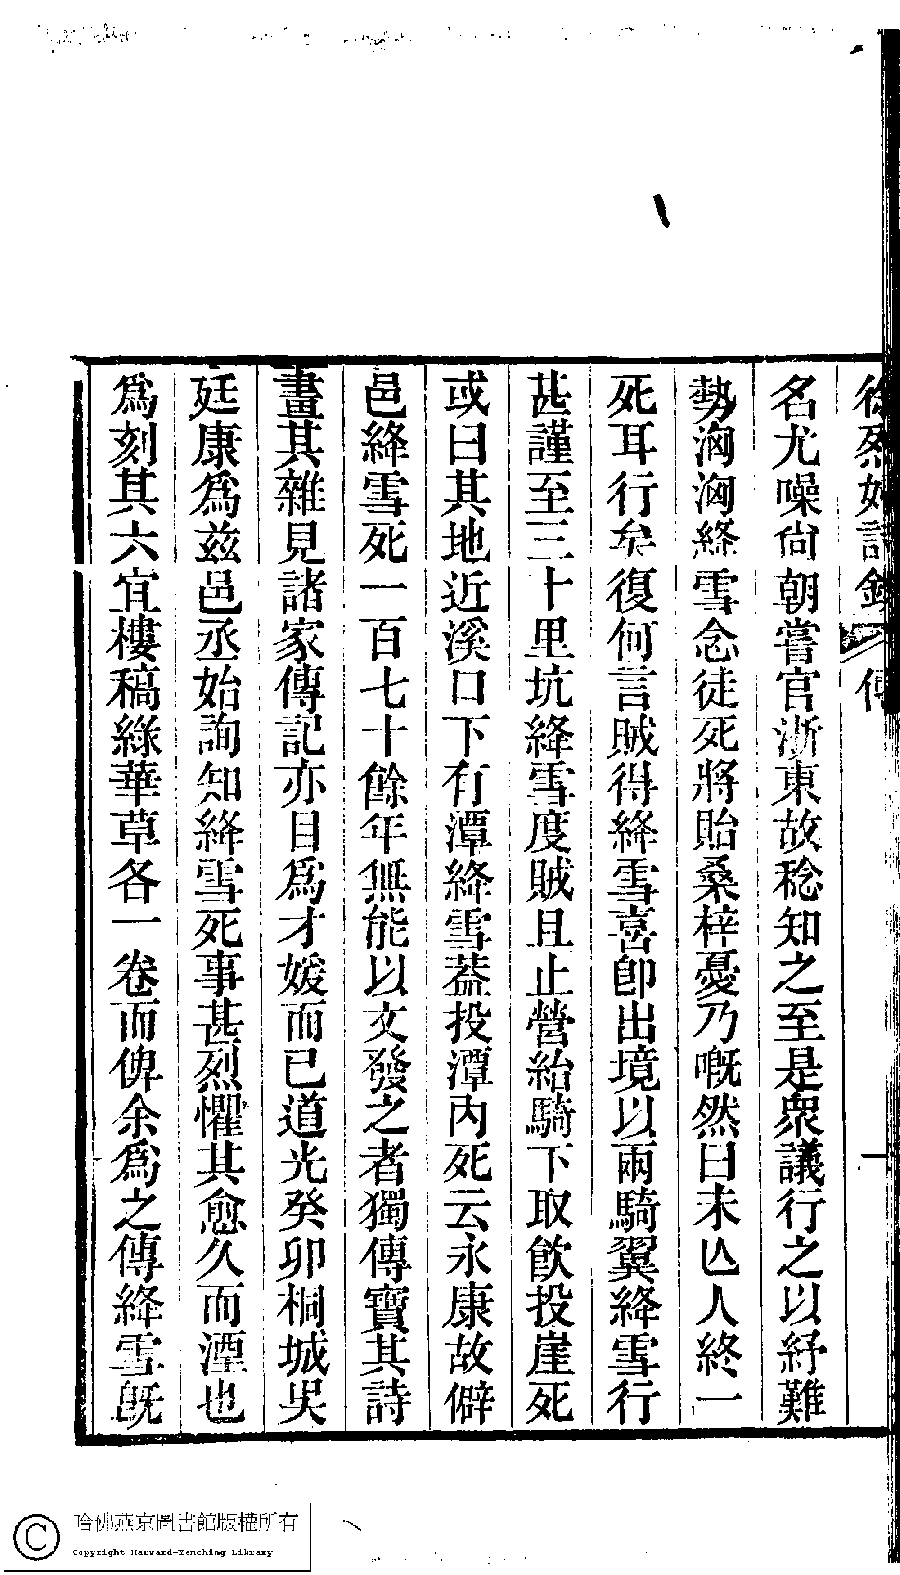 徐烈婦詩鈔 傳 一
名尤噪尙朝嘗官浙東故稔知之至是衆議行之以紓難
勢洶洶絳雪念徒死將貽桑梓憂乃嘅然曰未亾人終一
死耳行矣復何言賊得絳雪喜卽出境以兩騎翼絳雪行
甚謹至三十里坑絳雪度賊且止營紿騎下取飮投崖死
或曰其地近溪口下有潭絳雪葢投潭內死云永康故僻
邑絳雪死一百七十餘年無能以文發之者獨傳寶其詩
畫其雜見諸家傳記亦目爲才媛而已道光癸卯桐城吳
廷康爲兹邑丞始詢知絳雪死事甚烈懼其愈久而湮也
爲刻其六宜樓稿綠華草各一卷而俾余爲之傳絳雪旣
哈佛燕京圖書館版權所有
Copyright Harvard-Yenching Library